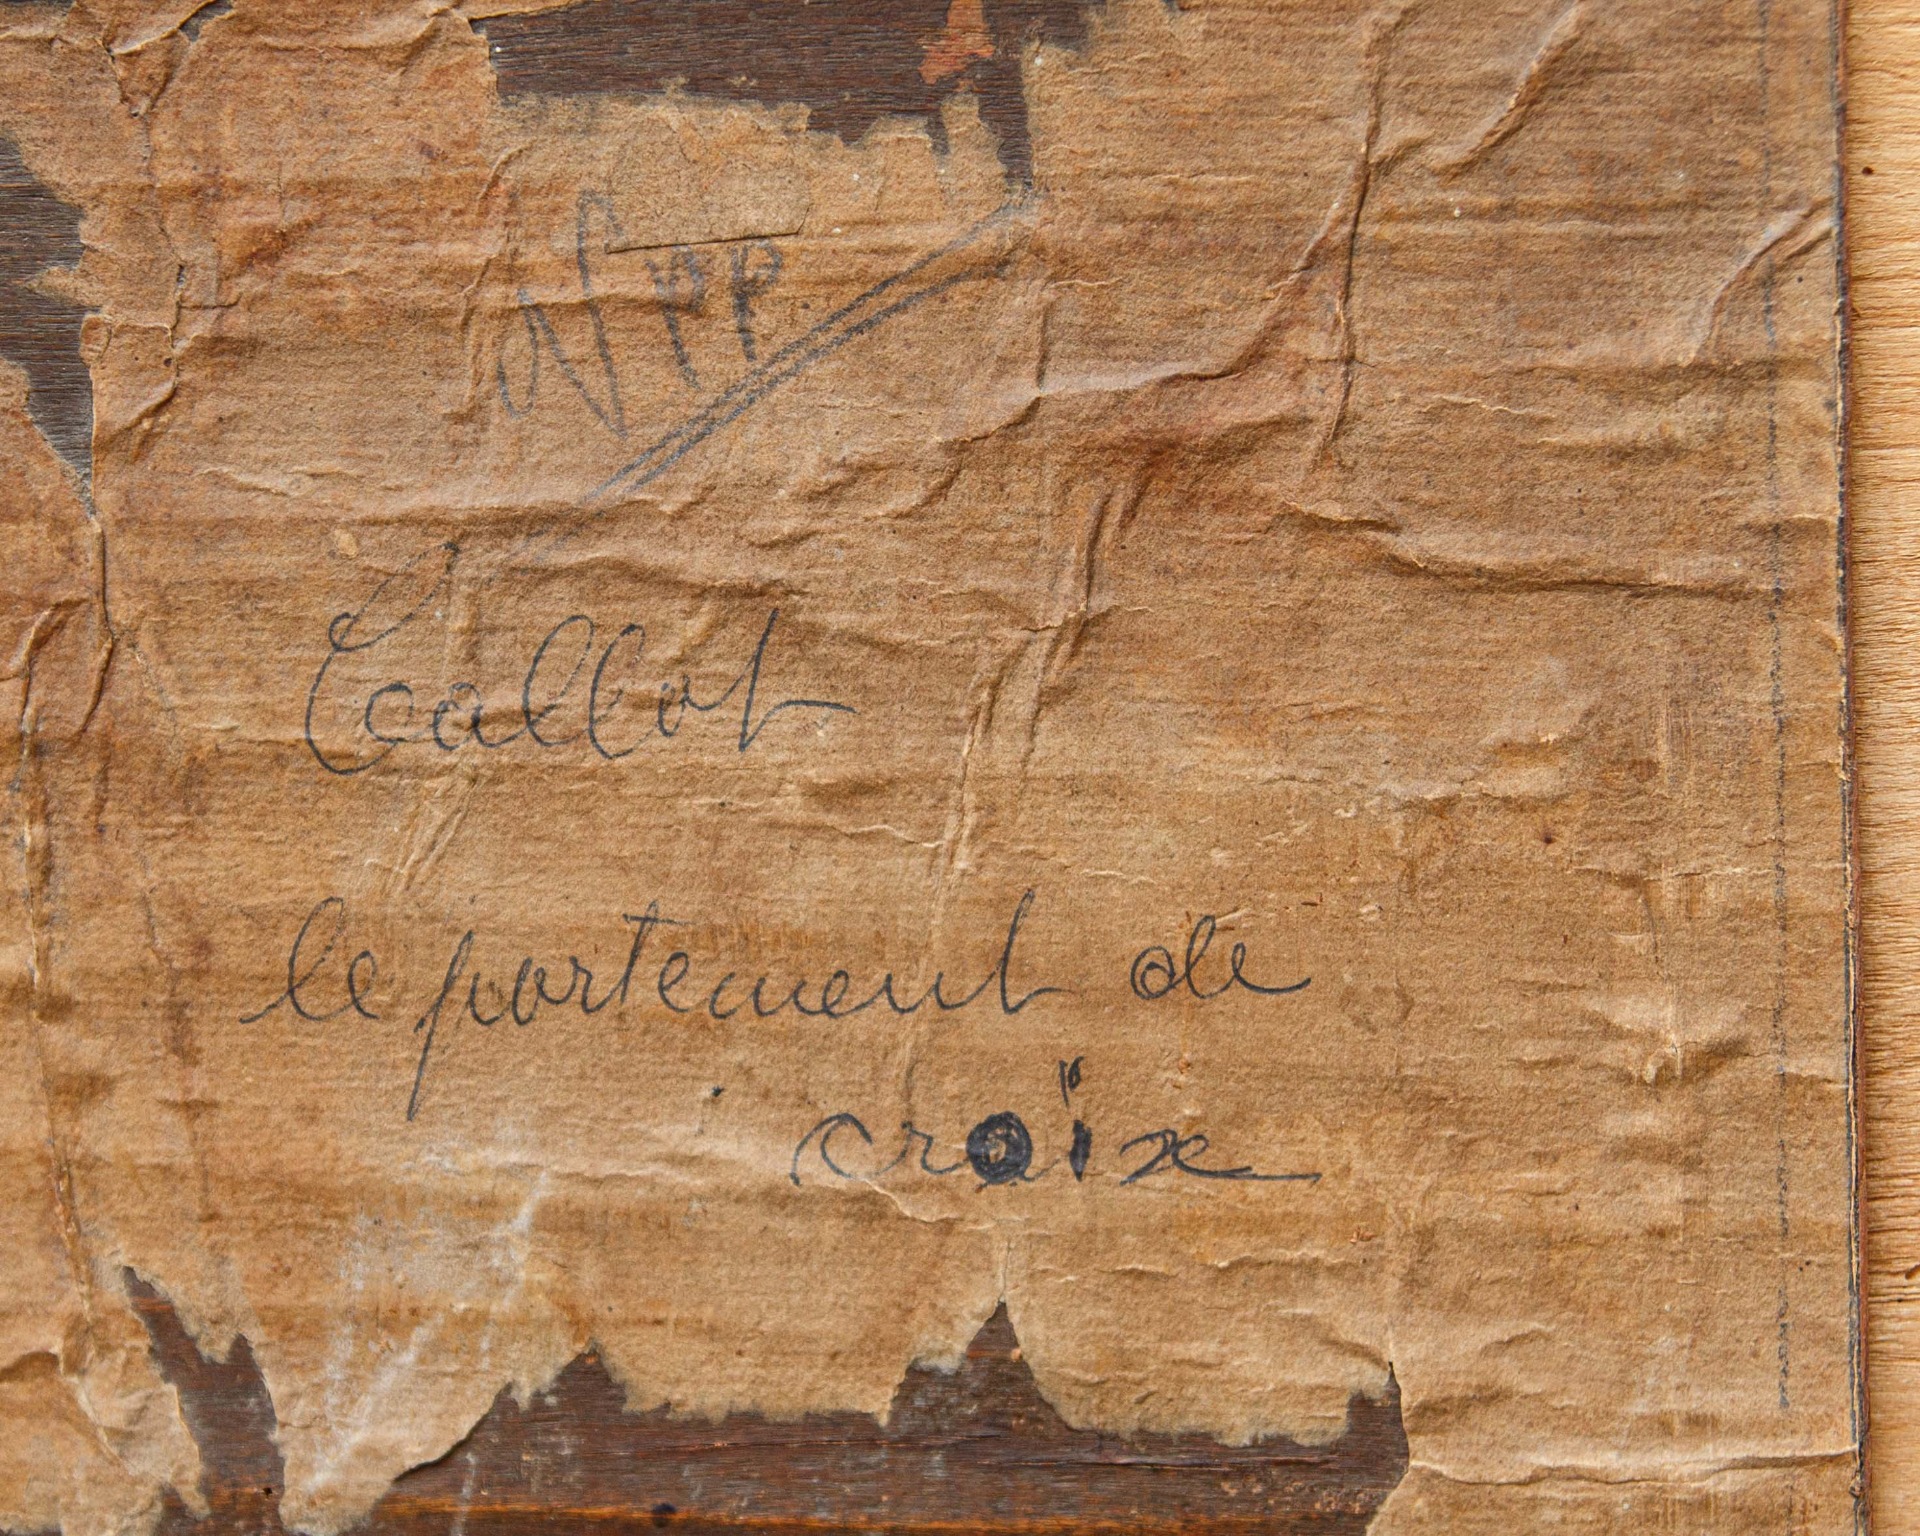 Callot
le portement de
croix